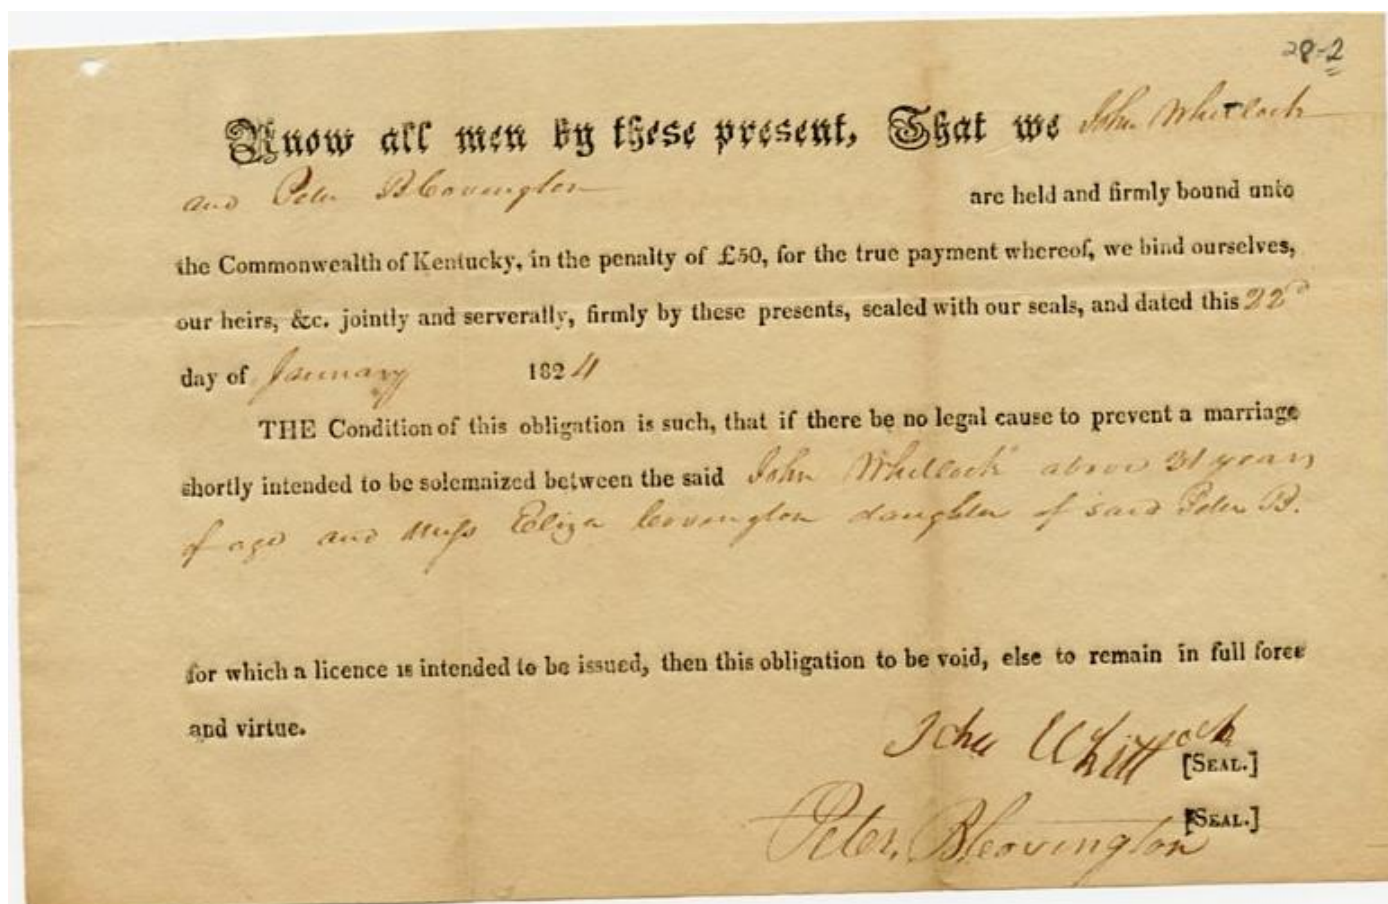 28-2
Know all men by these present, That we John Whitlock
and Peter B Covington are held and firmly bound unto
the Commonwealth of Kentucky, in the penalty of £50, for the true payment whereof, we bind ourselves,
our heirs, &c. jointly and serverally, firmly by these presents, sealed with our seals, and dated this 22d
day of January 1824
THE Condition of this obligation is such, that if there be no legal cause to prevent a marriage
shortly intended to be solemnized between the said John Whitlock above 21 years
of age and Miss Eliza Covington daughter of said Peter B.
for which a licence is intended to be issued, then this obligation to be void, else to remain in full force
and virtue.
John Whittlock
[SEAL.]
Peter B Covington [SEAL.]